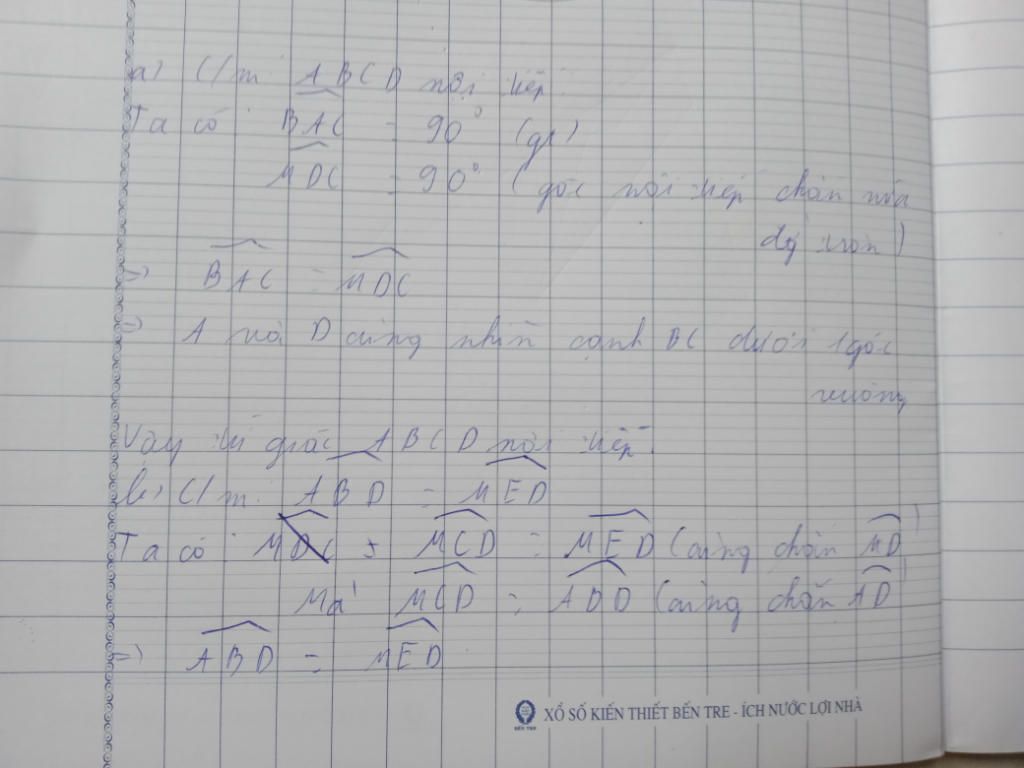 a) C/m: ABCD nội tiếp
Ta có BAC = 90° (gt)
MDC = 90° (góc nội tiếp chắn nửa
đg tròn)
=> BAC = MDC
=> A và D cùng nhìn cạnh BC dưới 1 góc
vuông
Vậy tứ giác ABCD nội tiếp.
b) C/m: ABD = MED
Ta có: MCD = MED (cùng chắn MD)
Mà MCD = ABD (cùng chắn AD)
=> ABD = MED
XỔ SỐ KIẾN THIẾT BẾN TRE - ÍCH NƯỚC LỢI NHÀ
BẾN TRE